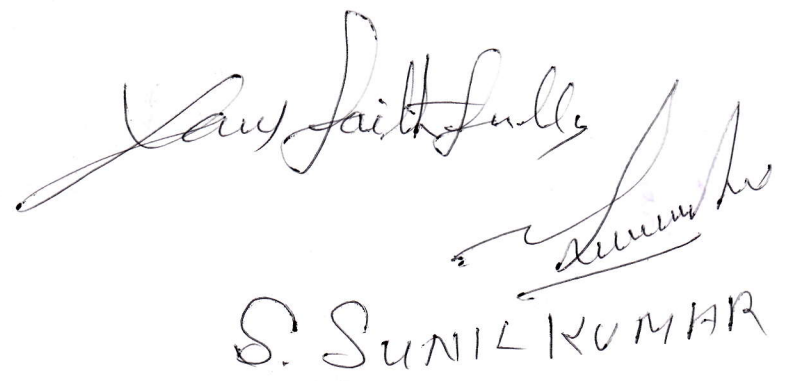 Yours faithfully
S. SUNIL KUMAR